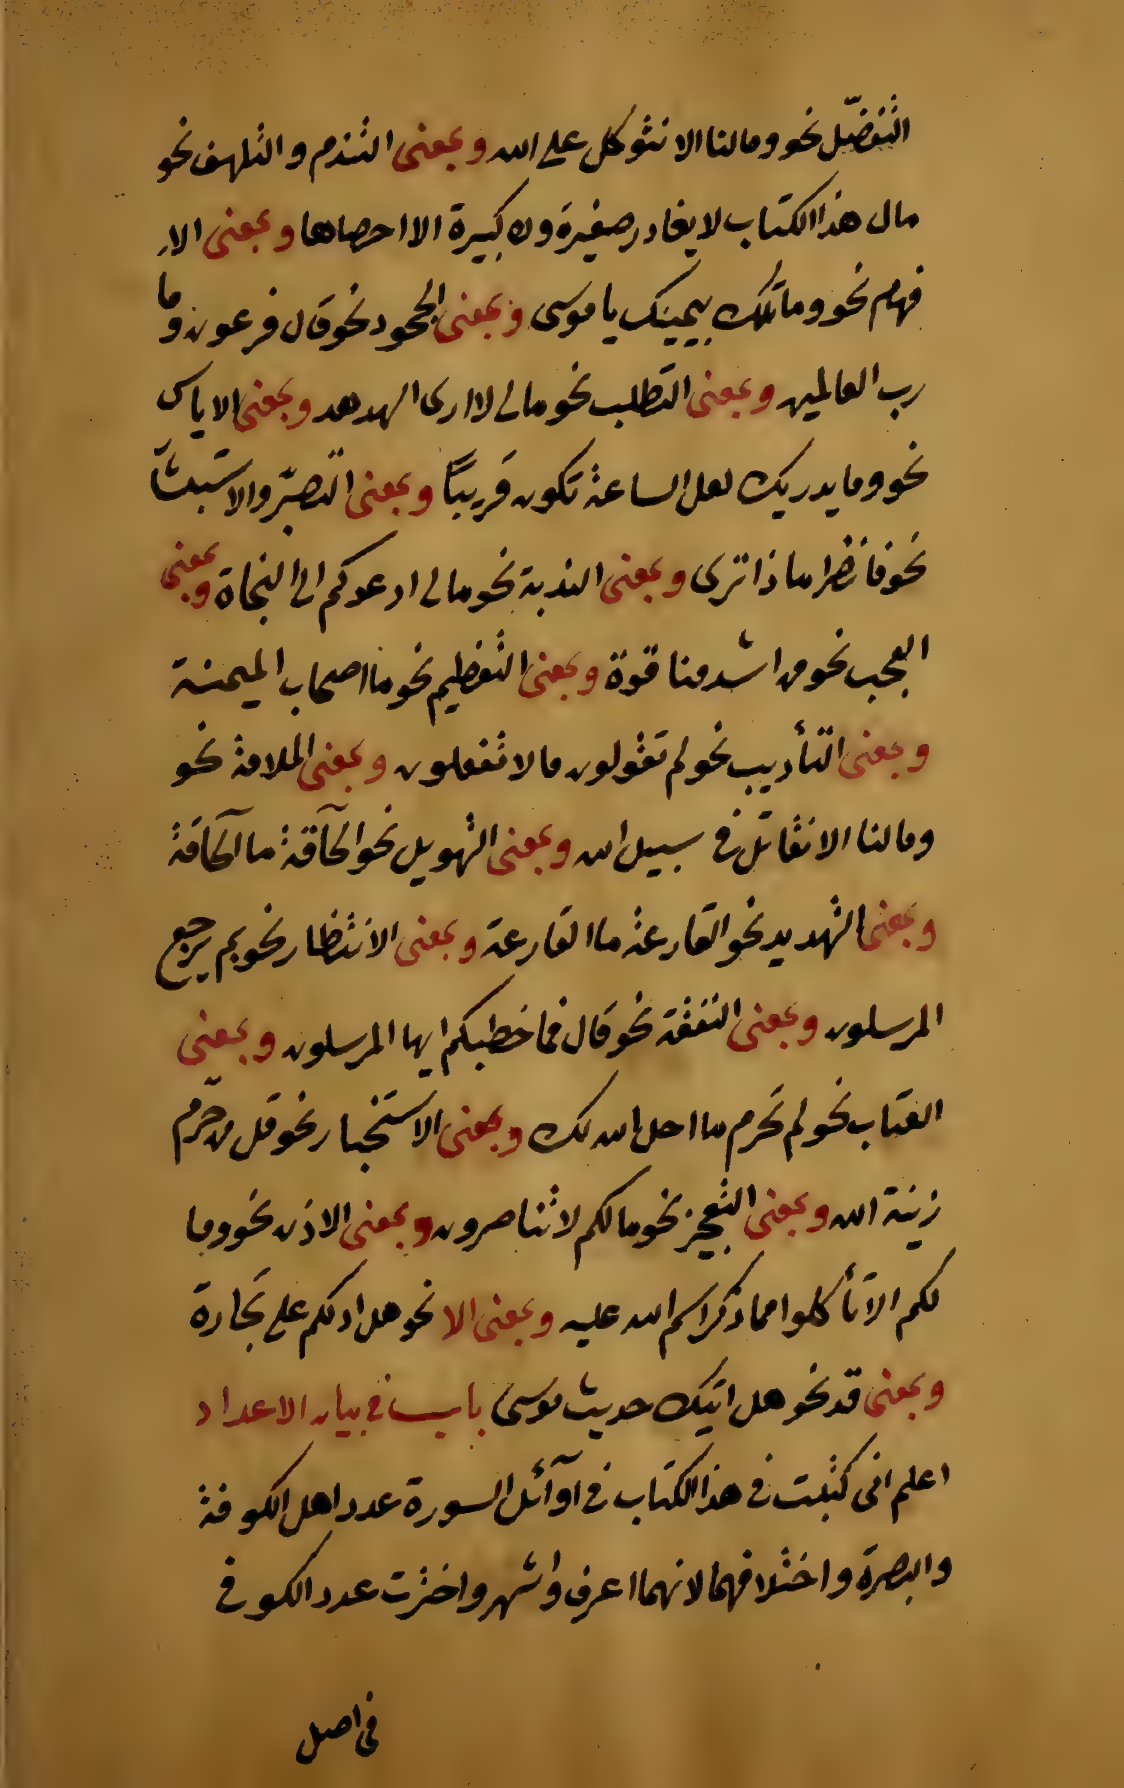 التفضّل نحو ومالنا الا نتوكل على الله وبمعنى التندم والتلهف نحو
مال هذا الكتاب لا يغادر صغيرة ولا كبيرة الا احصاها وبمعنى الا
فهام نحو وما تلك بيمينك يا موسى وبمعنى الجحود نحو قال فرعون وما
رب العالمين وبمعنى التطلب نحو مالى لا ارى الهدهد وبمعنى الاياس
نحو وما يدريك لعل الساعة تكون قريبًا وبمعنى التصبّر والاستبثا
نحو فانظر ماذا ترى وبمعنى الندبة نحو مالى ادعوكم الى النجاة وبمعنى
العجب نحو من اشد منا قوة وبمعنى التعظيم نحو ما اصحاب الميمنة
وبمعنى التأديب نحو لم تقولون مالا تفعلون وبمعنى الملامة نحو
ومالنا الا نقاتل فى سبيل الله وبمعنى التهويل نحو الحآقة ما الحآقة
وبمعنى التهديد نحو القارعة ما القارعة وبمعنى الانتظار نحو بم يرجع
المرسلون وبمعنى النفقة نحو قال فما خطبكم ايها المرسلون وبمعنى
العتاب نحو لم تحرم ما احل الله لك وبمعنى الاستخبار نحو قل من حرّم
زينة الله وبمعنى التعجيز نحو مالكم لا تناصرون وبمعنى الاذن نحو وما
لكم الا تأكلوا مما ذكر اسم الله عليه وبمعنى الا نحو هل ادلكم على تجارة
وبمعنى قد نحو هل اتيك حديث موسى باب فى بيان الاعداد
اعلم انى كتبت فى هذا الكتاب فى اوآئل السورة عدد اهل الكوفة
والبصرة واختلافهما لانهما اعرف واشهر واخترت عدد الكوفى
فى اصل